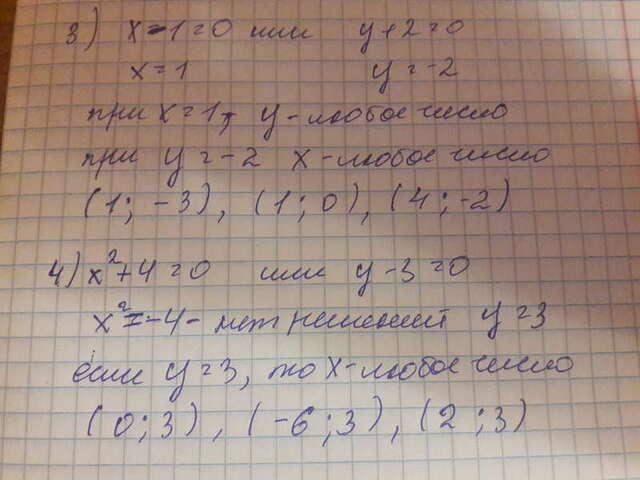 3) x-1=0 или y+2=0
x=1 y=-2
при x=1, y-любое число
при y=-2 x-любое число
(1;-3), (1;0), (4;-2)
4) x²+4=0 или y-3=0
x²=-4- нет решений y=3
если y=3, то x-любое число
(0;3), (-6;3), (2;3)